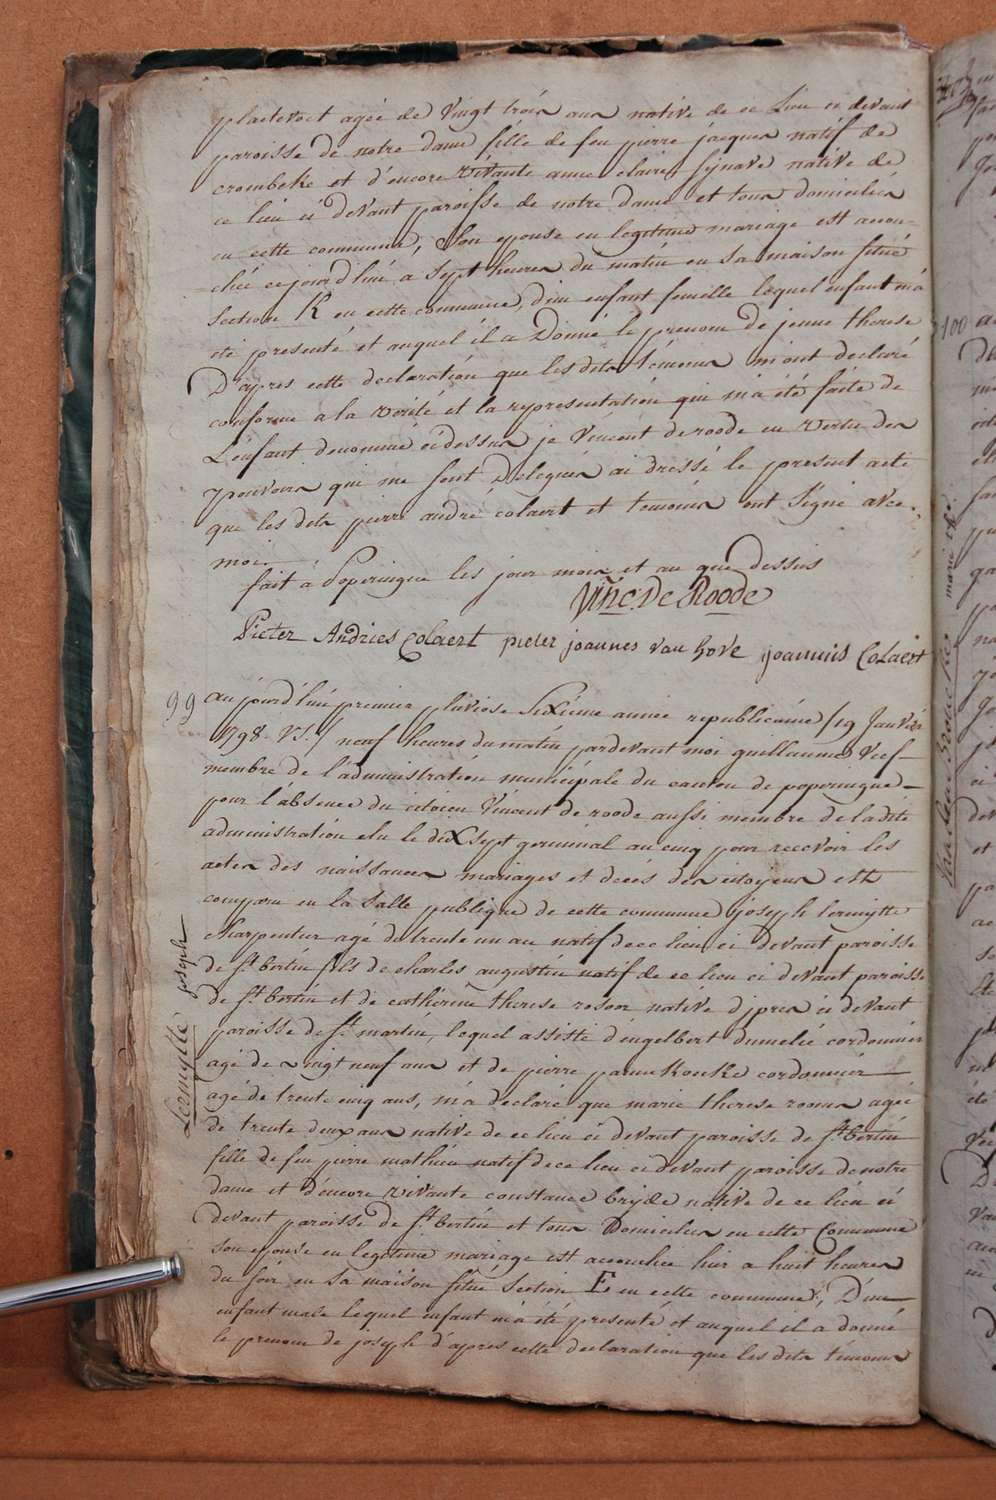 plaetevoet agée de vingt trois ans native de ce Lieu ci devant
paroisse de notre dame fille de feu pierre jacques natif de
crombeke et d'encore vivante anne claire synave native de
ce lieu ci devant paroisse de notre dame et tous domiciliés
en cette commune, son epouse en legitime mariage est accou-
chée cejourd'hui a sept heures du matin en sa maison situé
section K en cette commune, d'un enfant femelle lequel enfant m'a
été presenté et auquel il a Donné le prenom de jenne therese
D'apres cette declaration que les dits témoins m'ont declaré
conforme a la verité et la representation qui m'a été faite de
L'enfant denommé cidessus je Vincent de roode en vertu des
pouvoirs qui me sont Delegués ai dressé le present acte
que les dits pierre andré colaert et temoins ont signé avec
moi
fait a Poperingue les jour mois et an que dessus
Vinc. De Roode
Pieter Andries Colaert pieter joannes van hove joannis Colaert
99 aujourd'hui premier pluviose Sixieme année republicaine /19 Janvier
1798. VS./ neuf heures du matin pardevant moi guillaume
membre de l'administration municipale du canton de poperingue
pour l'absence du citoien Vincent de roode aussi membre de la dite
administration elu le dix sept germinal an cinq pour recevoir les
actes des naissances mariages et décés des citoyens est
comparu en la salle publique de cette commune joseph lermytte
charpentier agé de trente un an natif de ce lieu ci devant paroisse
de st bertin fils de charles augustin natif de ce lieu ci devant paroisse
de st bertin et de catherine therese native d'ipres ci devant
paroisse de st martin, lequel assisté d'engelbert cordonnier
agé de vingt neuf ans et de pierre pannekoucke cordonnier
agé de trente cinq ans, m'a declaré que marie therese agée
de trente deux ans native de ce lieu ci devant paroisse de st bertin
fille de feu pierre mathieu natif de ce lieu ci devant paroisse de notre
dame et d'encore vivante constance bryde native de ce lieu ci
devant paroisse de st bertin et tous Domiciliés en cette Commune
son epouse en legitime mariage est accouchée hier a huit heures
du soir en sa maison située Section E en cette commune, D'un
enfant male lequel enfant m'a été presenté et auquel il a donné
le prenom de joseph d'apres cette declaration que les dits temoins
Lermytte joseph
100